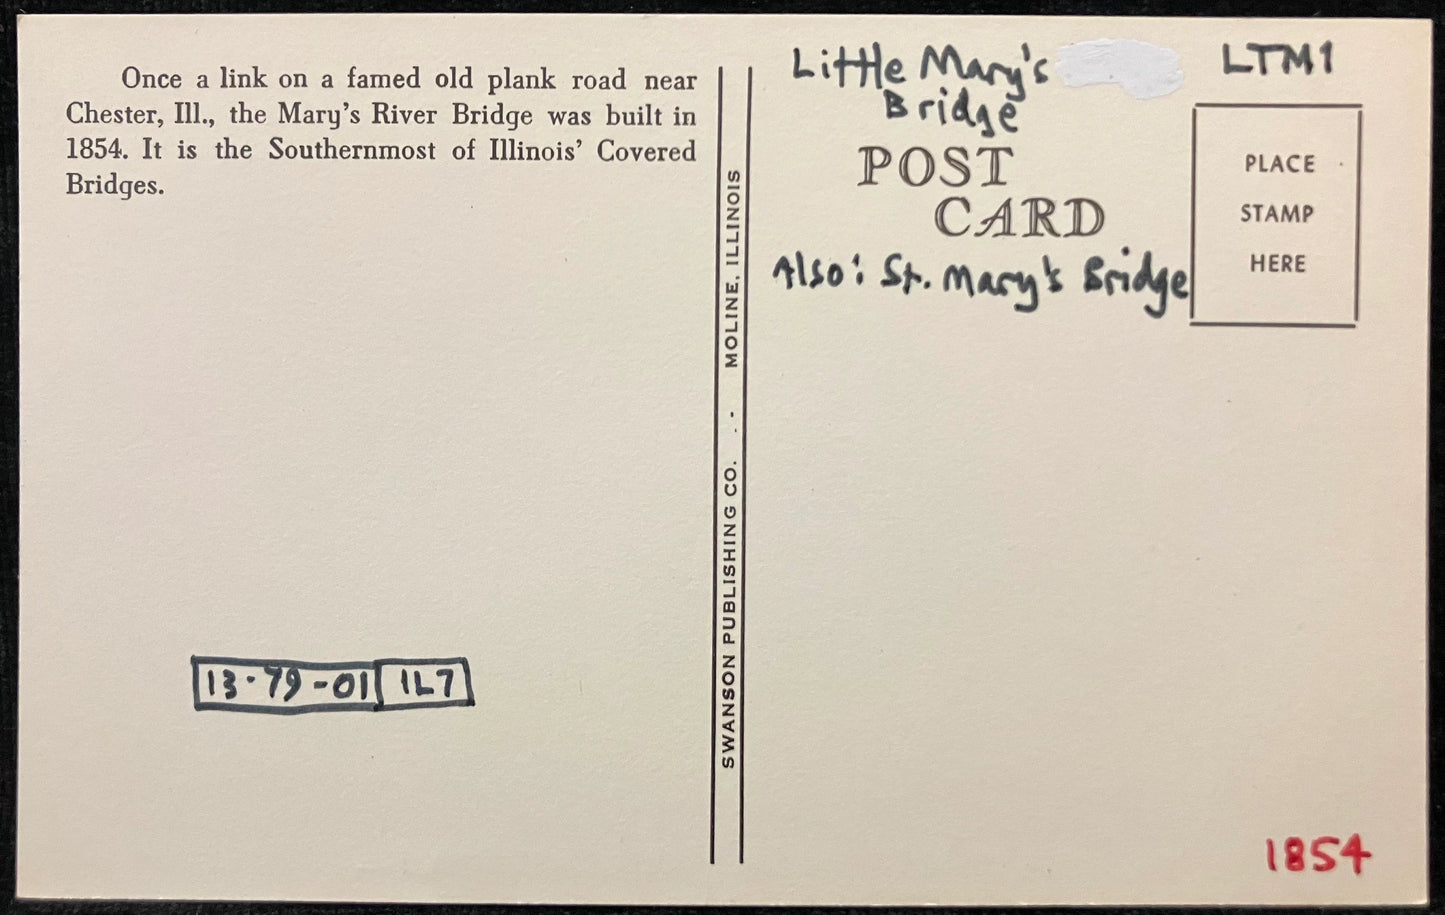 Once a link on a famed old plank road near
Chester, Ill., the Mary's River Bridge was built in
1854. It is the Southernmost of Illinois' Covered
Bridges.
13-79-01 IL7
SWANSON PUBLISHING CO. . - MOLINE, ILLINOIS
Little Mary's
Bridge
LTM1
POST
CARD
Also: St. Mary's Bridge
PLACE
STAMP
HERE
1854